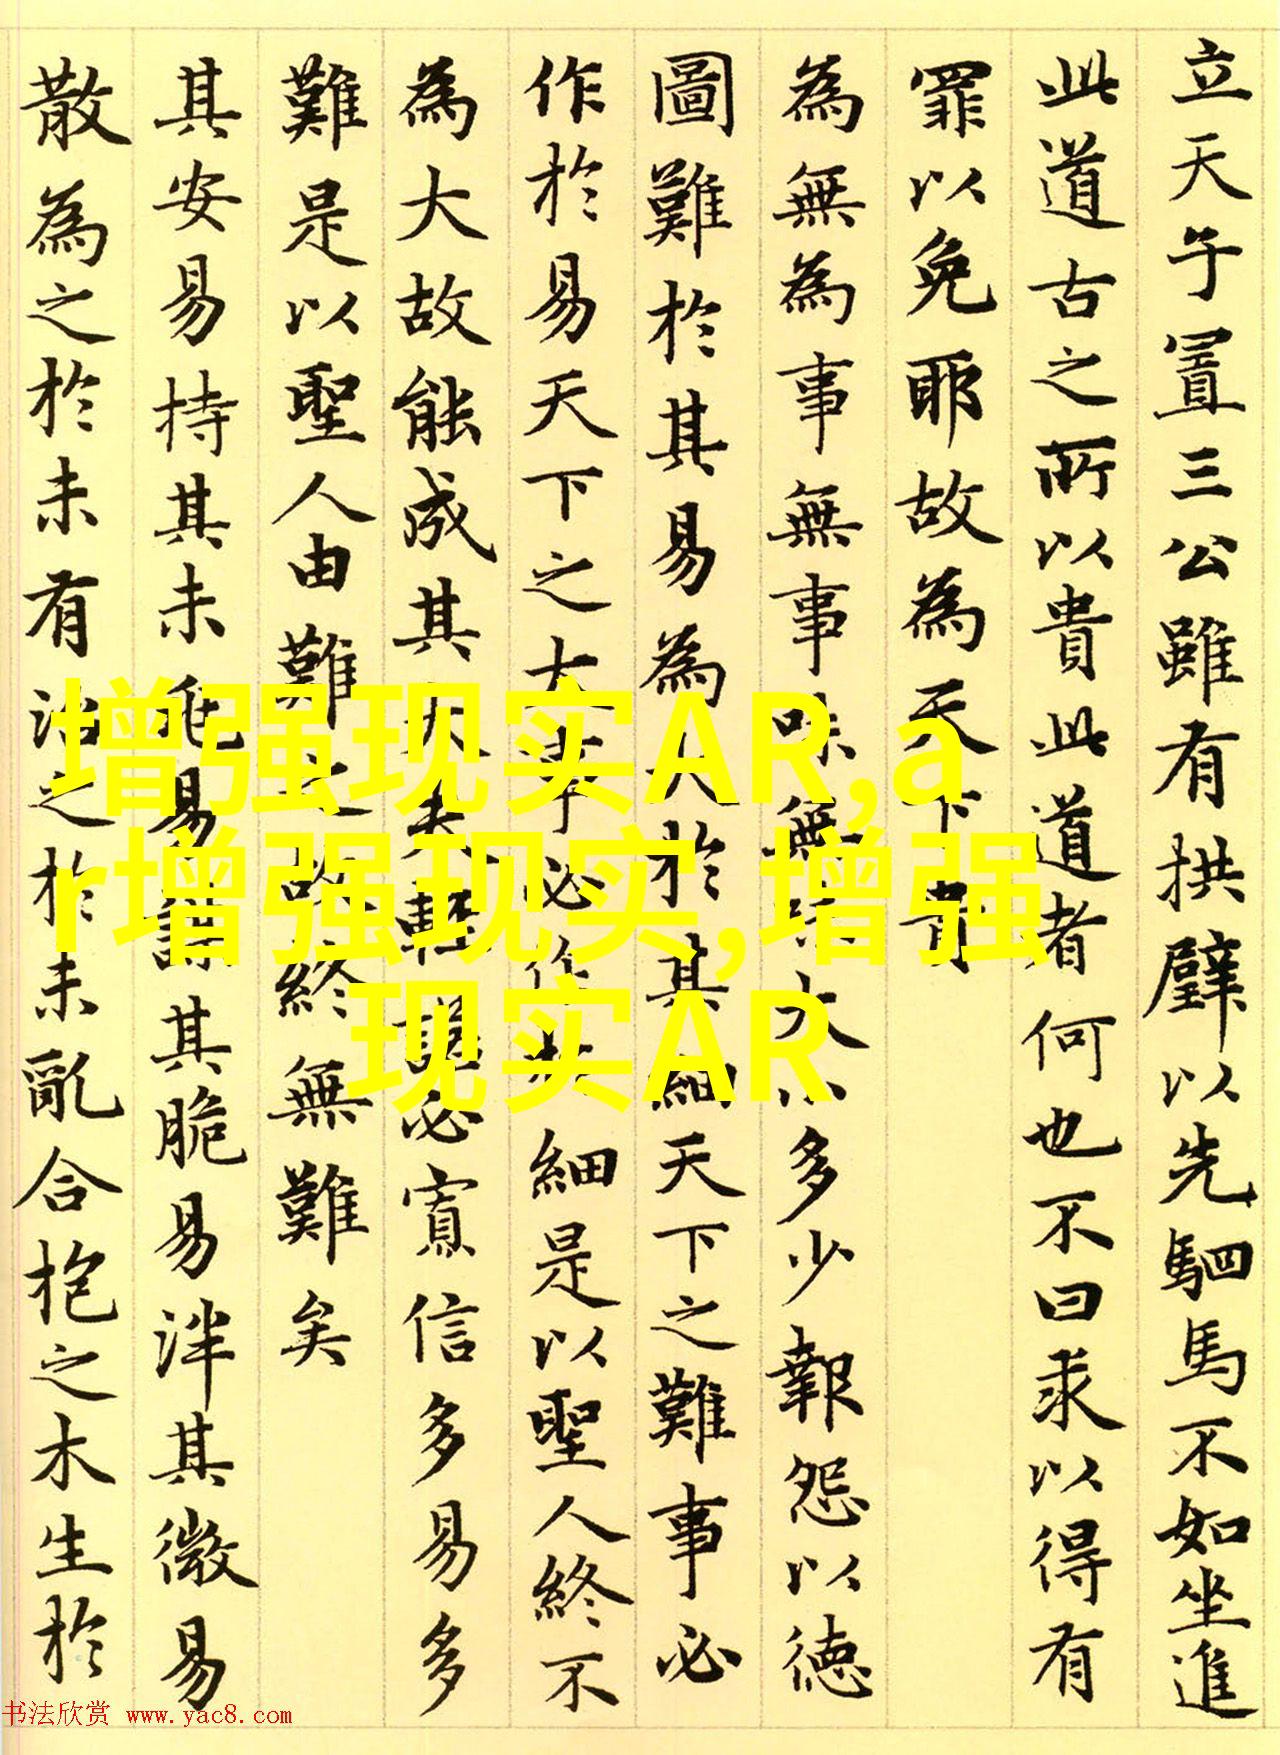 立天子置三公雖有拱璧以先駟馬不如坐進
此道古之所以貴此道者何也不曰求以得有
罪以免耶故為天下貴
為無為事無事味無味大小多少報怨以德
圖難於其易為大於其細天下之難事必
作於易天下之大事必作於細是以聖人終不
為大故能成其大夫輕諾必寡信多易多
難是以聖人由難之故終無難矣
其安易持其未兆易謀其脆易泮其微易
散為之於未有治之於未亂合抱之木生於
增强现实AR,a
r增强现实,增强
现实AR
书法欣赏 www.yac8.com